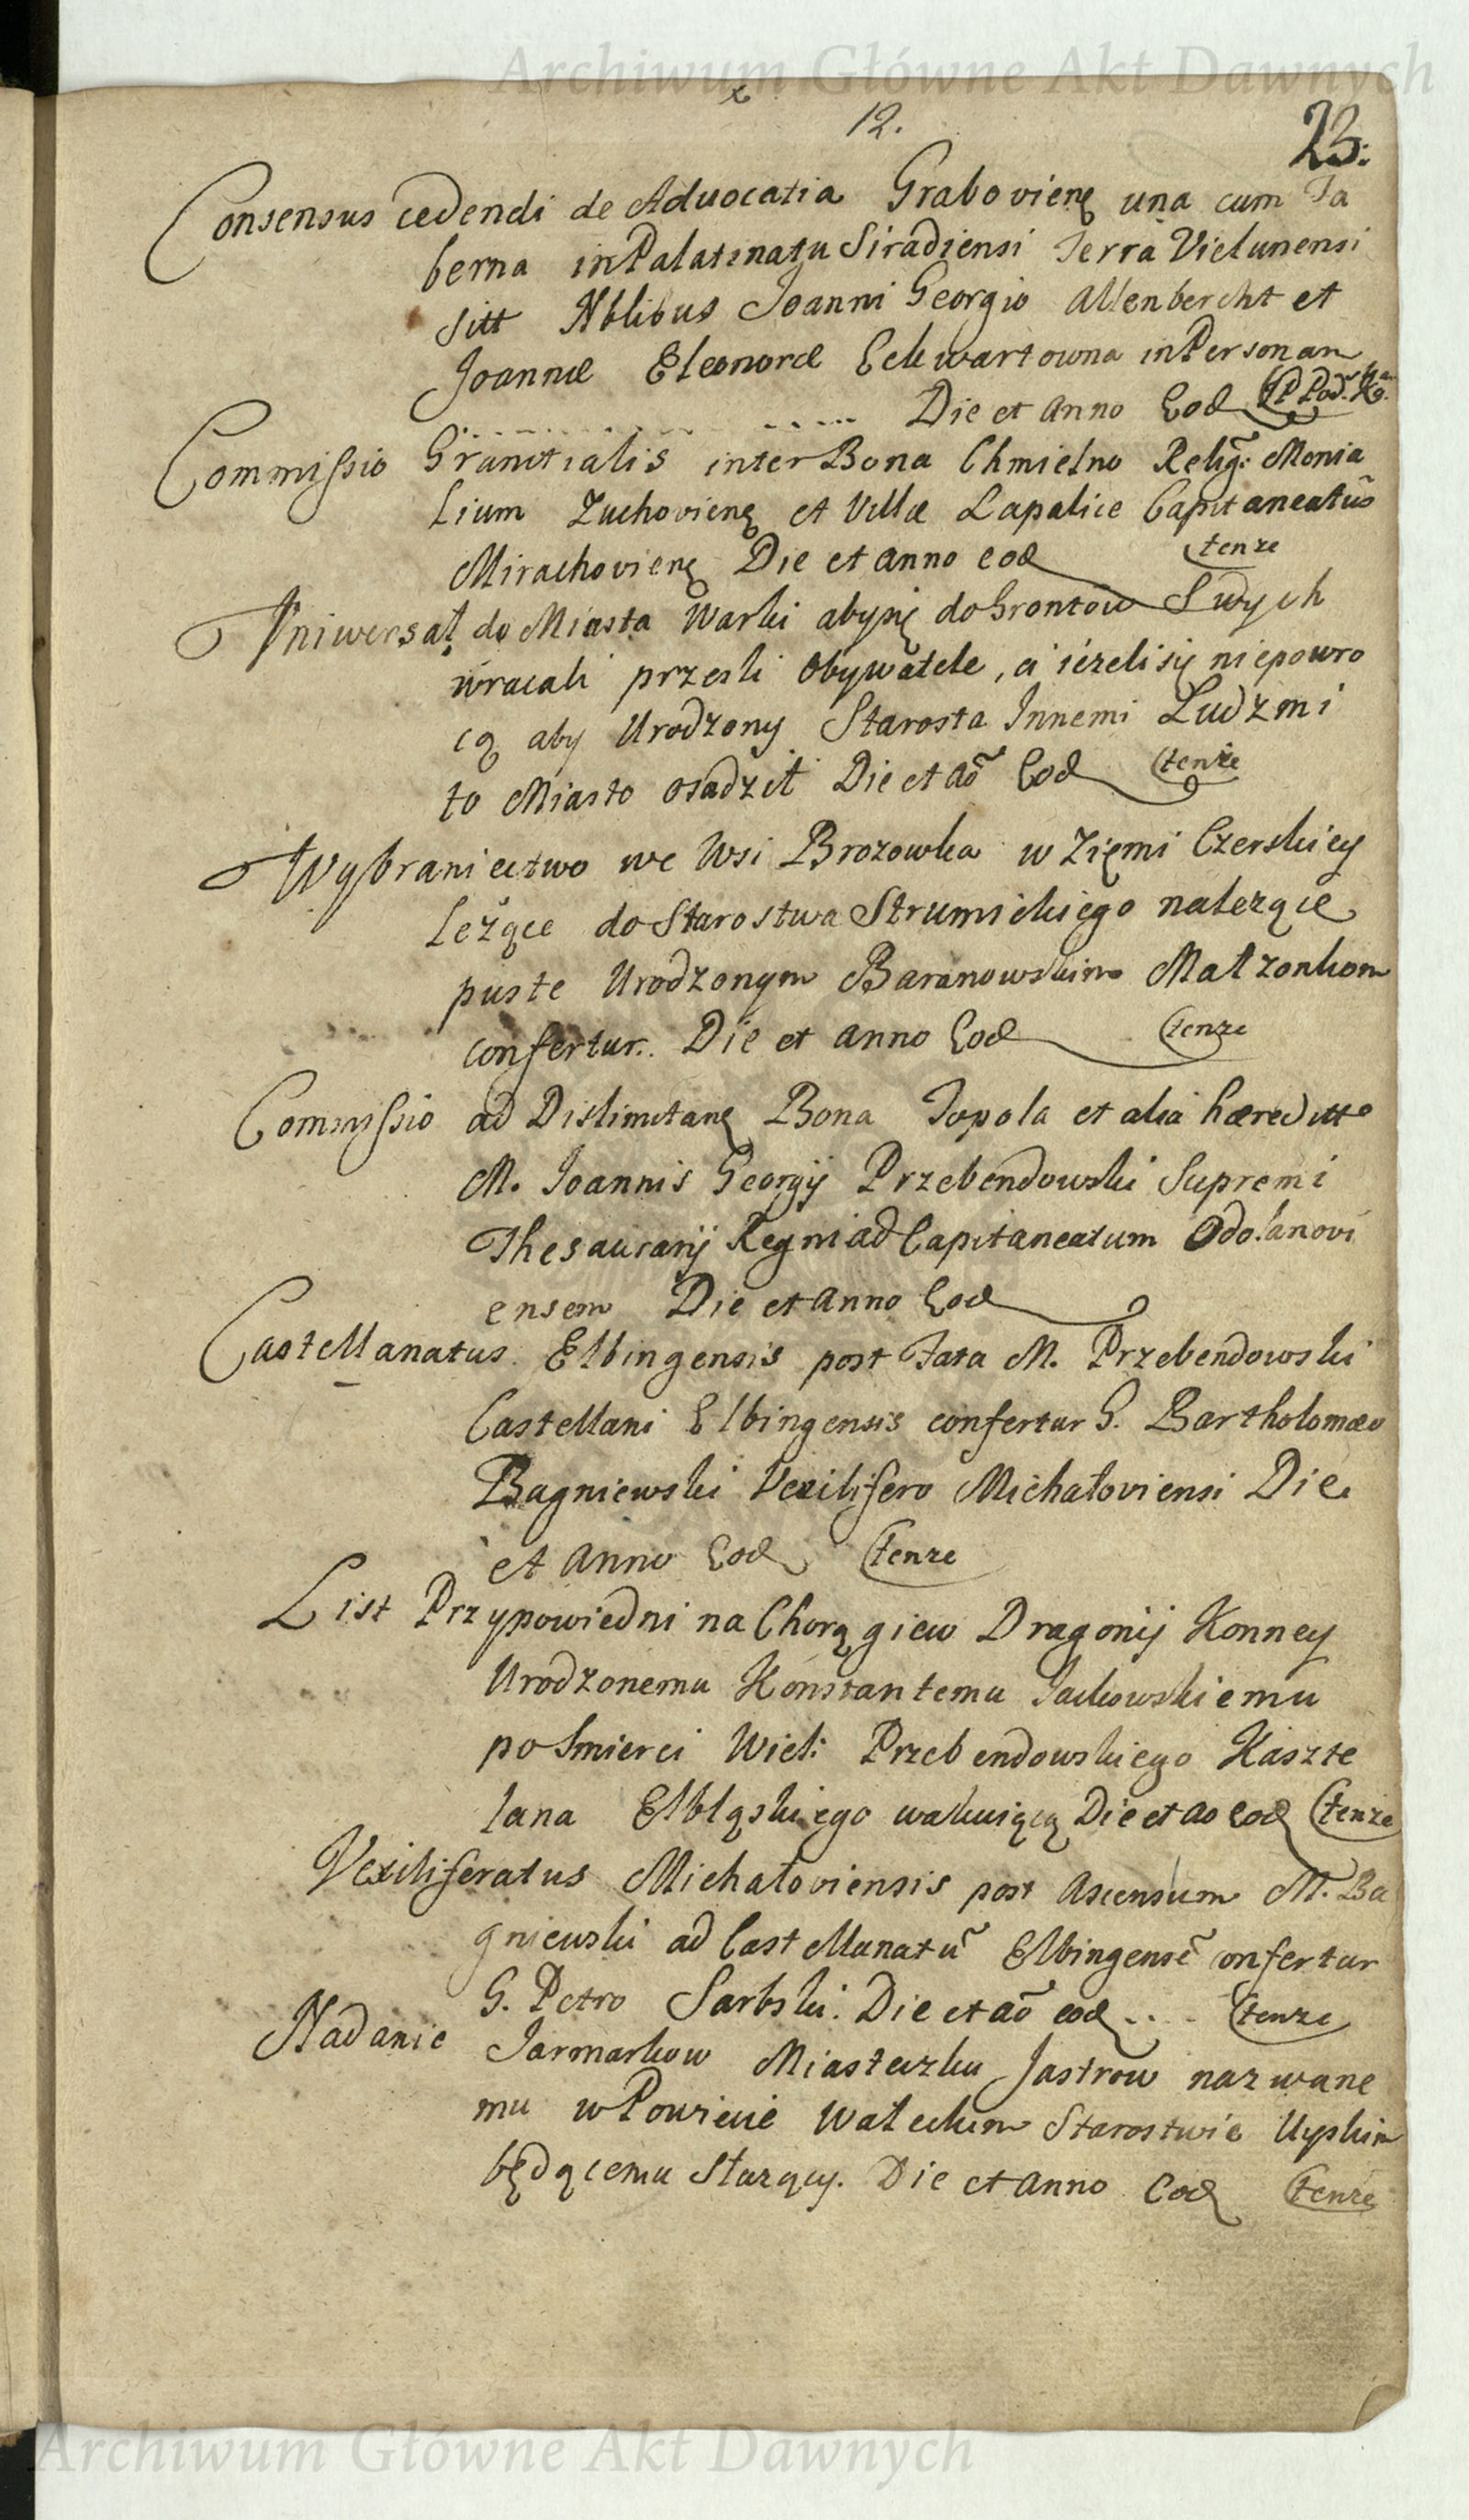 Archiwum Główne Akt Dawnych
12.
23.
Consensus cedendi de Advocatia Graboviens una cum Ta
berna in Palatinatu Siradiensi Terra Vielunensi
sitt Nblibus Joanni Georgio Allenbercht et
Joannæ Eleonoræ Eckwartowna in Personam
..... Die et Anno Eod
Commissio Granitialis inter Bona Chmielno Relig: Monia
lium Zuchoviens et Villæ Lapalice Capitaneatus
Mirachoviens Die et Anno eod tenze
Vniwersał do Miasta Warki aby się do Grontow Swych
wracali przeszli Obywatele, a ieżeli się niepowro
cą aby Urodzony Starosta Innemi Ludzmi
to Miasto osadził Die et Aõ Eod tenże
Wybraniectwo we Wsi Brozowka w Ziemi Czerskiey
leżące do Starostwa Strumickiego nalezące
puste Urodzonym Baranowskim Małzonkom
confertur. Die et Anno Eod tenze
Commissio ad Dislimitans Bona Topola et alia hæreditt
M. Joannis Georgij Przebendowski Supremi
Thesaurarij Regni ad Capitaneatum Odolanovi
ensem Die et Anno Eod
Castellanatus Elbingensis post Fata M. Przebendowski
Castellani Elbingensis confertur G. Bartholomæo
Bagniewski Vexilifero Michałoviensi Die
et Anno Eod tenze
List Przypowiedni na Chorągiew Dragonij Konney
Urodzonemu Konstantemu Jackowskiemu
po Smierci Wiel: Przebendowskiego Kaszte
lana Elbląskiego wakuiącą Die et ao eod tenze
Vexiliferatus Michałoviensis post Ascensum M. Ba
gniewski ad Castellanatũ Elbingensẽ confertur
G. Petro Sarbski. Die et aõ eod ... tenze
Nadanie Jarmarkow Miasteczku Jastrow nazwane
mu w Powiecie Wałeckim Starostwie Uyskim
będącemu Służący. Die et Anno Eod tenze
Archiwum Główne Akt Dawnych